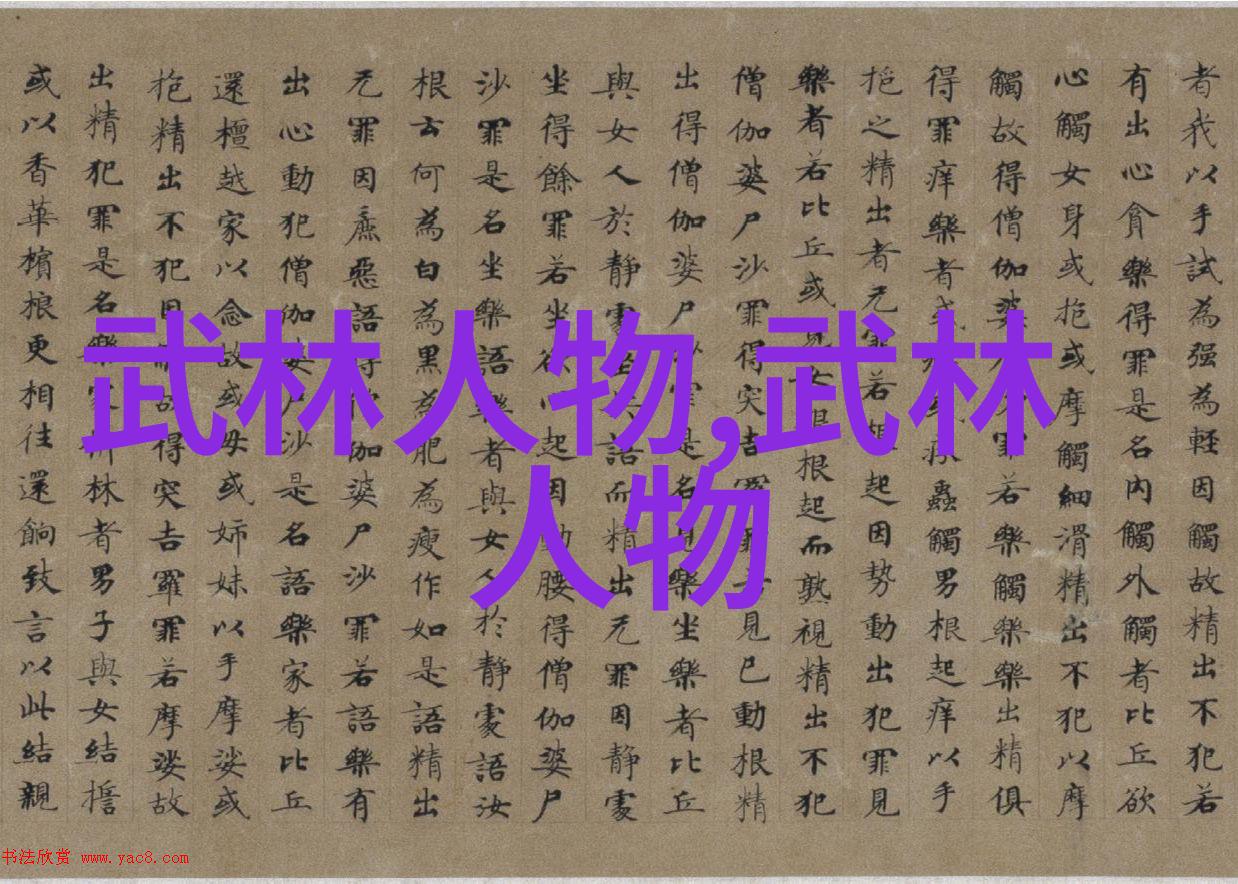 者我以手試為强為輕因觸故精出不犯若
有出心貪樂得罪是名内觸外觸者比丘欲
心觸女身或抱或摩觸細滑精出不犯以摩
觸故得僧伽婆罪若樂觸樂樂出精俱
得罪痒樂者或蟲觸男根起痒以手
抱之精出者无罪若起因勢動出犯罪見
樂者若比丘或見女根根起而熟視精出不犯
僧伽婆尸沙罪得突吉羅罪若見已動根精
出得僧伽婆尸沙罪是名見樂坐樂者比丘
與女人於静處坐共語而精出无罪因静處
坐得餘罪若坐欲心起因動腰得僧伽婆尸
沙罪是名坐樂語樂者與女人於静處語汝
根云何為白為黑為肥為瘦作如是語精出
无罪因麁惡語得僧伽婆尸沙罪若語樂有
出心動犯僧伽婆尸沙是名語樂家者比丘
還檀越家以念故或母或姉妹以手摩娑或
抱精出不犯因故得突吉羅罪若摩娑故
出精犯罪是名樂家林者男子與女結誓
或以香華檳榔更相往還餉致言以此結親
武林人物,武林
人物
书法欣赏 www.yac8.com